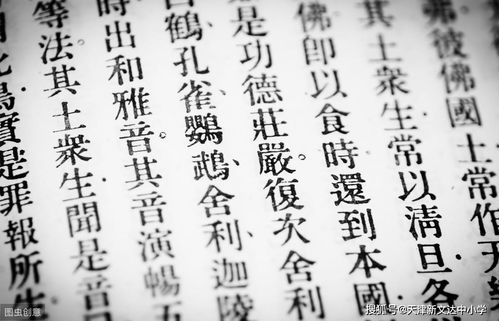 弗彼佛國土常作天
其土衆生常以淸旦各
佛卽以食時還到本國
是功德莊嚴。復次舍利
白鶴、孔雀、鸚鵡、舍利、迦陵
時出和雅音。其音演暢五
等法其土衆生聞是音
此鳥實是罪報所生
图虫创意
搜狐号@天津新文达中小学